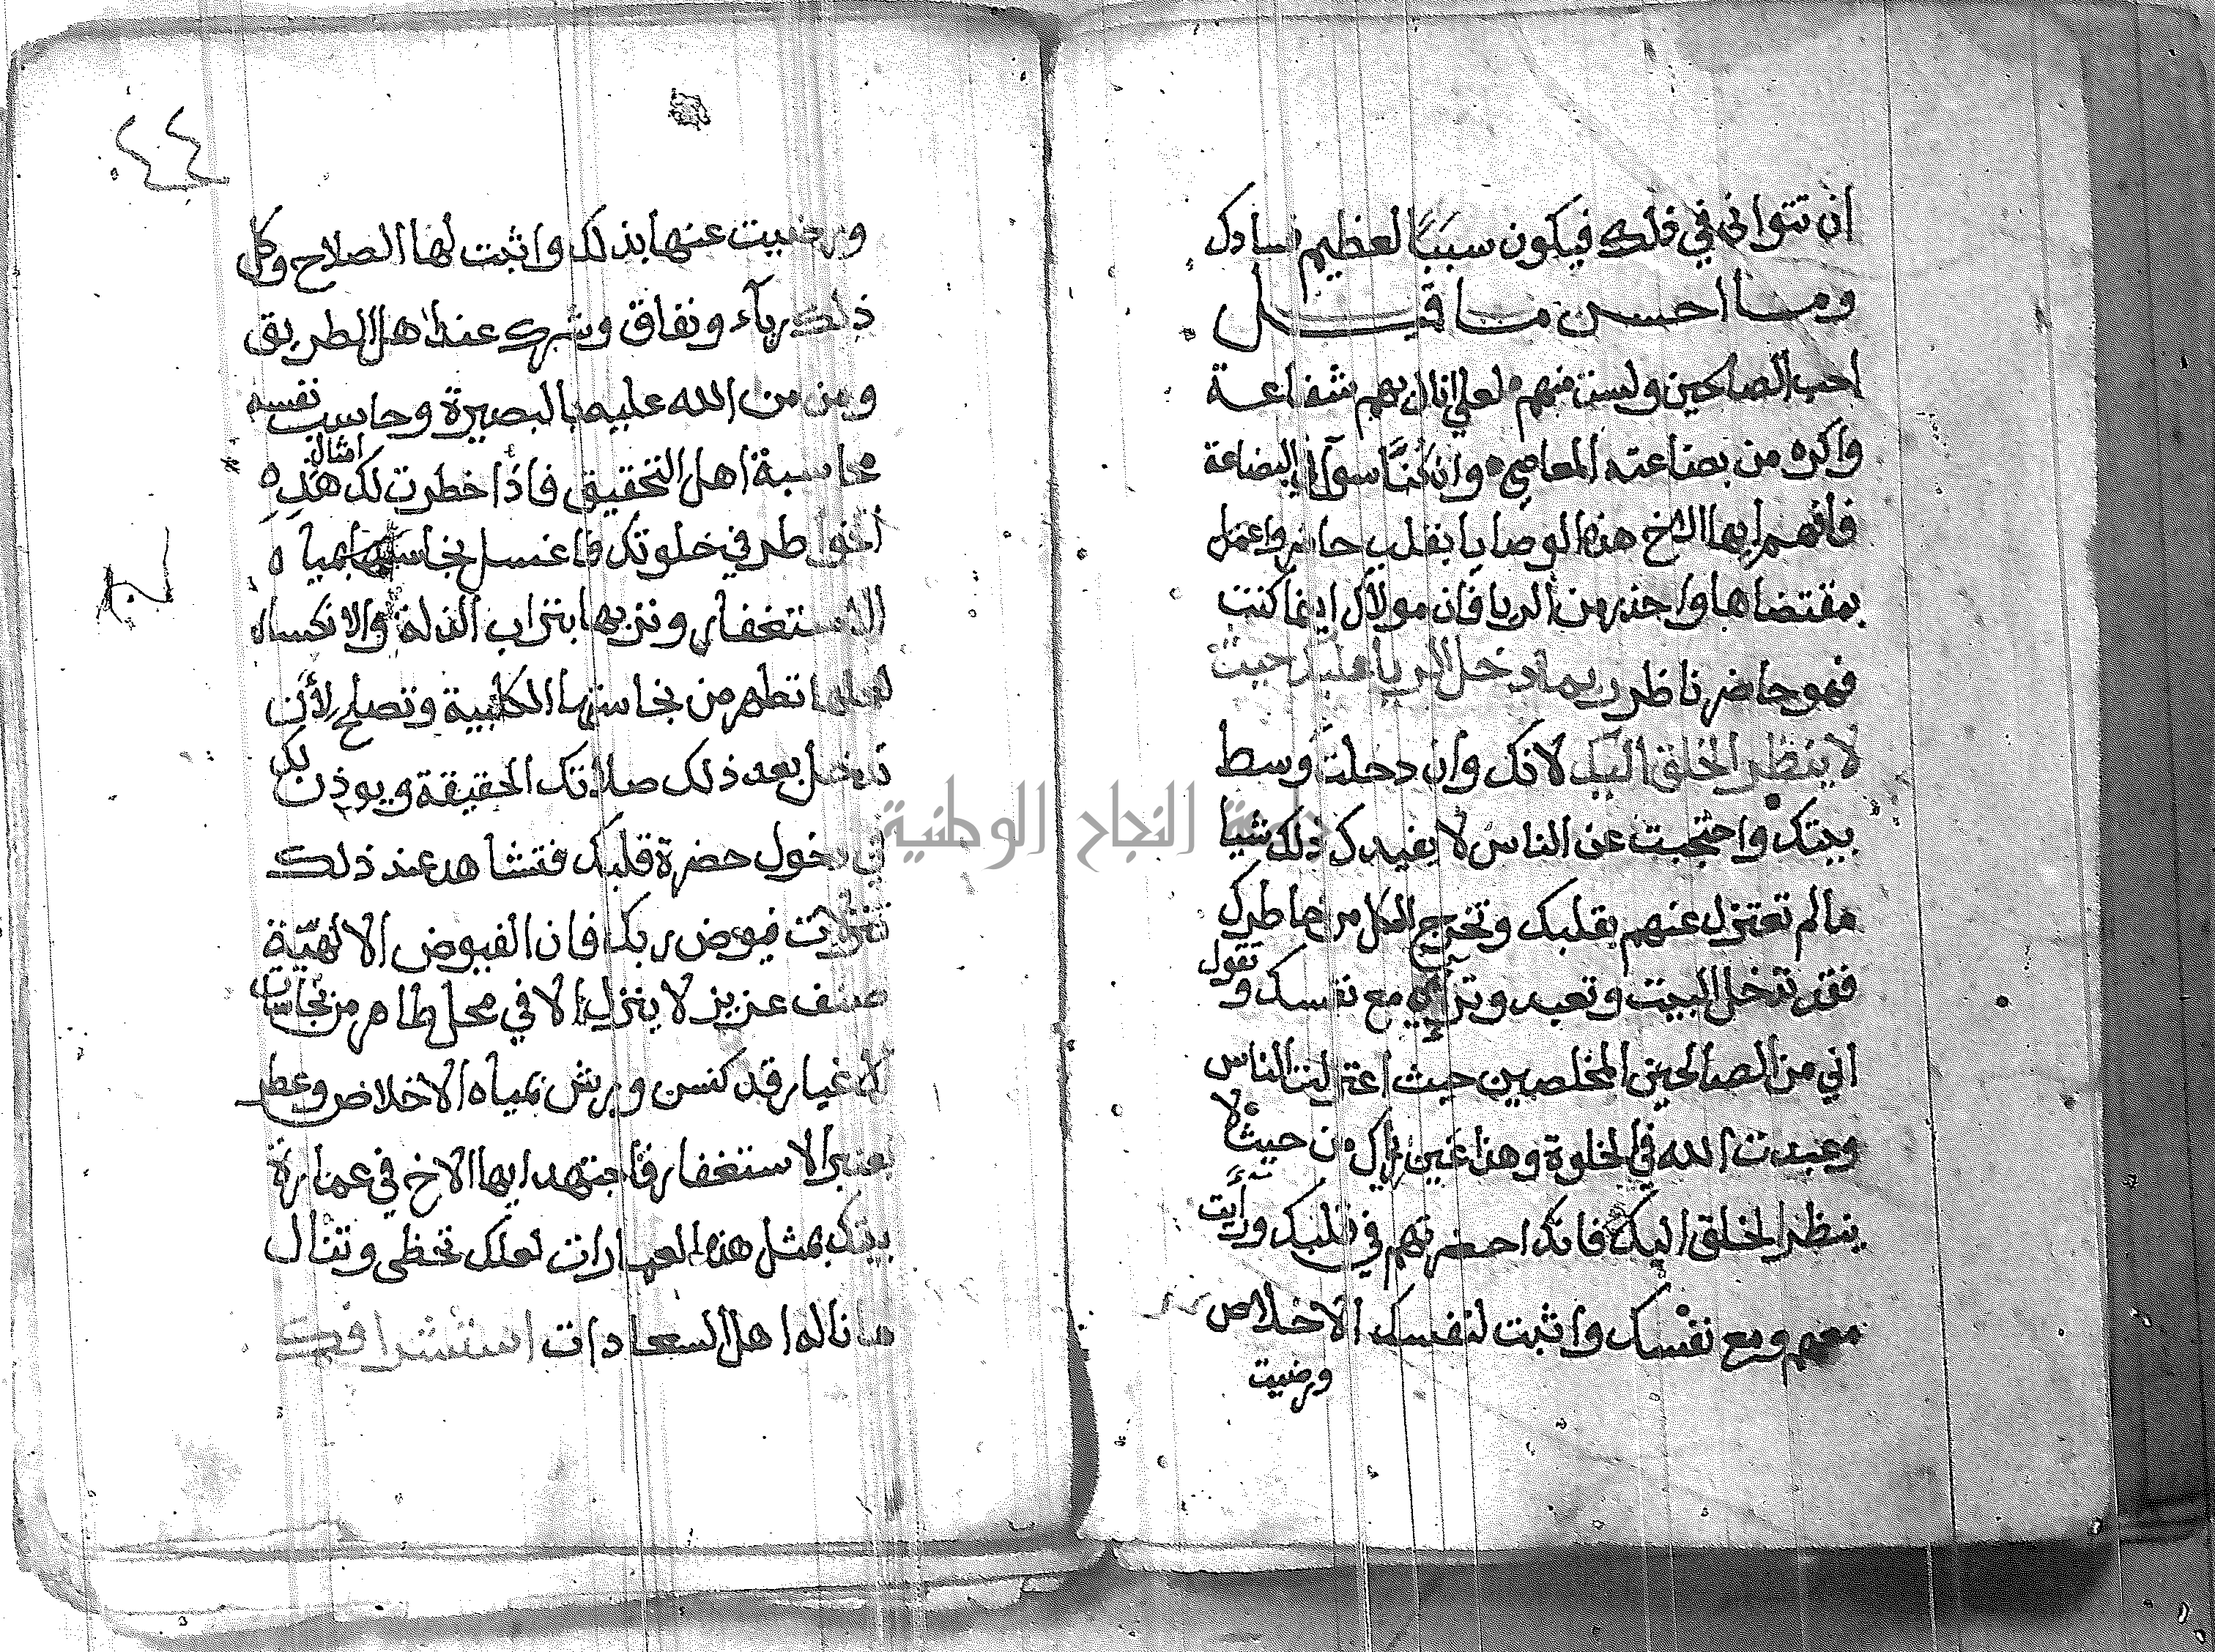 ان تتوانى في ذلك فيكون سببًا لعظيم فسادك
وما احسن ما قيل
احب الصالحين ولست منهم لعلي انال بهم شفاعة
واكره من بضاعته المعاصي وان كُنَّا سوآ في البضاعة
فافهم ايها الاخ هذه الوصايا بقلب حاضر واعمل
بمقتضاها واحذر من الريا فان مولاك اينما كنت
فهو حاضر ناظر ربما دخل الريا عليك حيث
لا ينظر الخلق اليك لانك وان دخلت وسط
بيتك واحتجبت عن الناس لا يفيدك ذلك شيا
مالم تعتزل عنهم بقلبك وتخرج الكل من خاطرك
فقد تدخل البيت وتعبد وتراي مع نفسك وتقول
اني من الصالحين المخلصين حيث اعتزلت الناس
وعبدت الله في الخلوة وهذا عين الريا من حيث لا
ينظر الخلق اليك فانك احضرتهم في قلبك ورأيت
معهم ومع نفسك واثبت لنفسك الاخلاص
ورضيت
٤٤
ورضيت عنها بذلك واثبت لها الصلاح وكل
ذلك رياء ونفاق وشرك عند اهل الطريق
ومن من الله عليه بالبصيرة وحاسب نفسه
محاسبة اهل التحقيق فاذا خطرت لك امثال هذه
الخواطر في خلوتك فاغسل نجاستها بمياه
الاستغفار وتربها بتراب الذلة والانكسار
لعلها تطهر من نجاستها الكلبية وتصلح لأن
تدخل بعد ذلك صلاتك الحقيقة ويوذن لك
في دخول حضرة قلبك فتشاهد عند ذلك
تنزلات فيوض ربك فان الفيوض الالهيّة
ضيف عزيز لا ينزل الا في محل طاهر من نجاسات
الاغيار قد كنس ورش بمياه الاخلاص وعطر
بعنبر الاستغفار فاجتهد ايها الاخ في عمارة
بيتك بمثل هذه العمارات لعلك تحظى وتنال
ما ناله اهل السعادات استشراقك
جامعة النجاح الوطنية